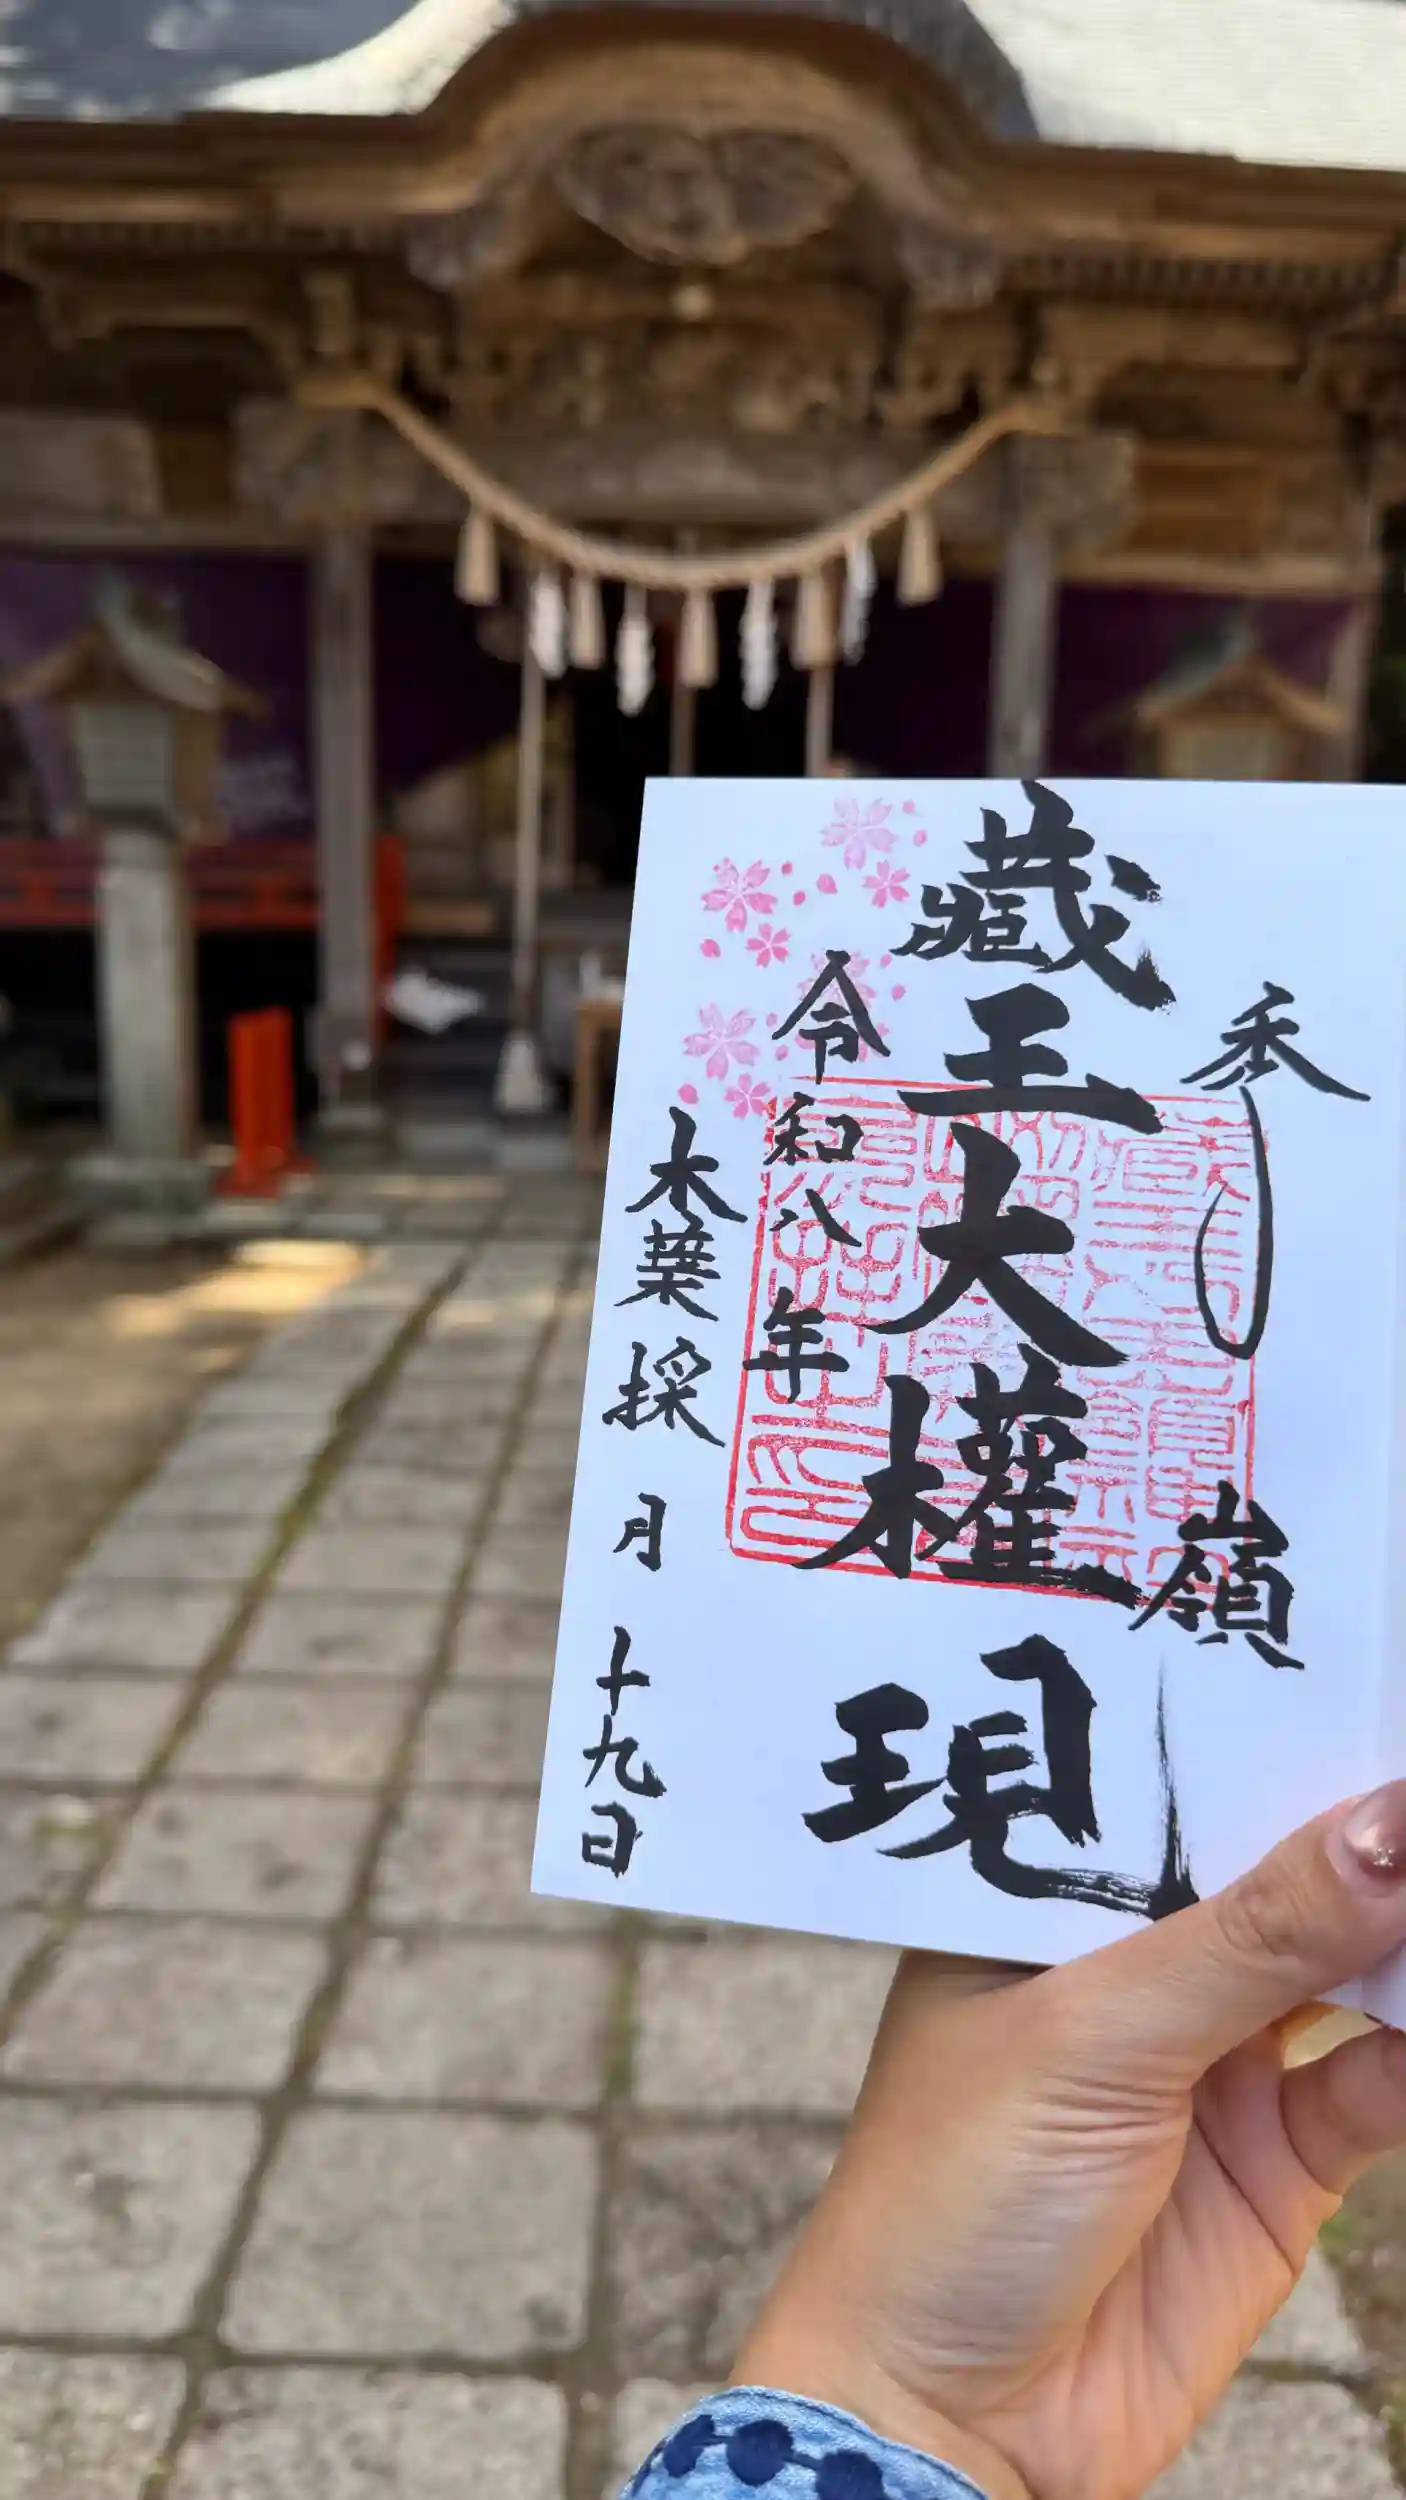 奉
嶺
蔵王大権現
令和八年
木葉採月十九日